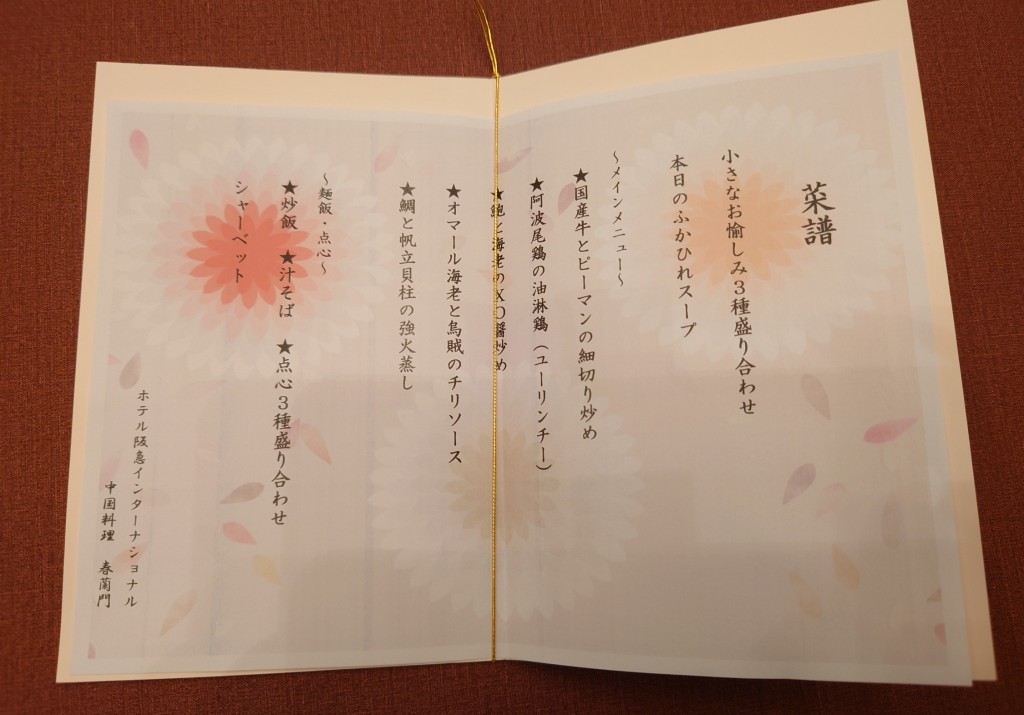 菜譜
小さなお愉しみ3種盛り合わせ
本日のふかひれスープ
～メインメニュー～
★国産牛とピーマンの細切り炒め
★阿波尾鶏の油淋鶏（ユーリンチー）
★鮑と海老のXO醤炒め
★オマール海老と烏賊のチリソース
★鯛と帆立貝柱の強火蒸し
～麺飯・点心～
★炒飯 ★汁そば ★点心3種盛り合わせ
シャーベット
ホテル阪急インターナショナル
中国料理 春蘭門